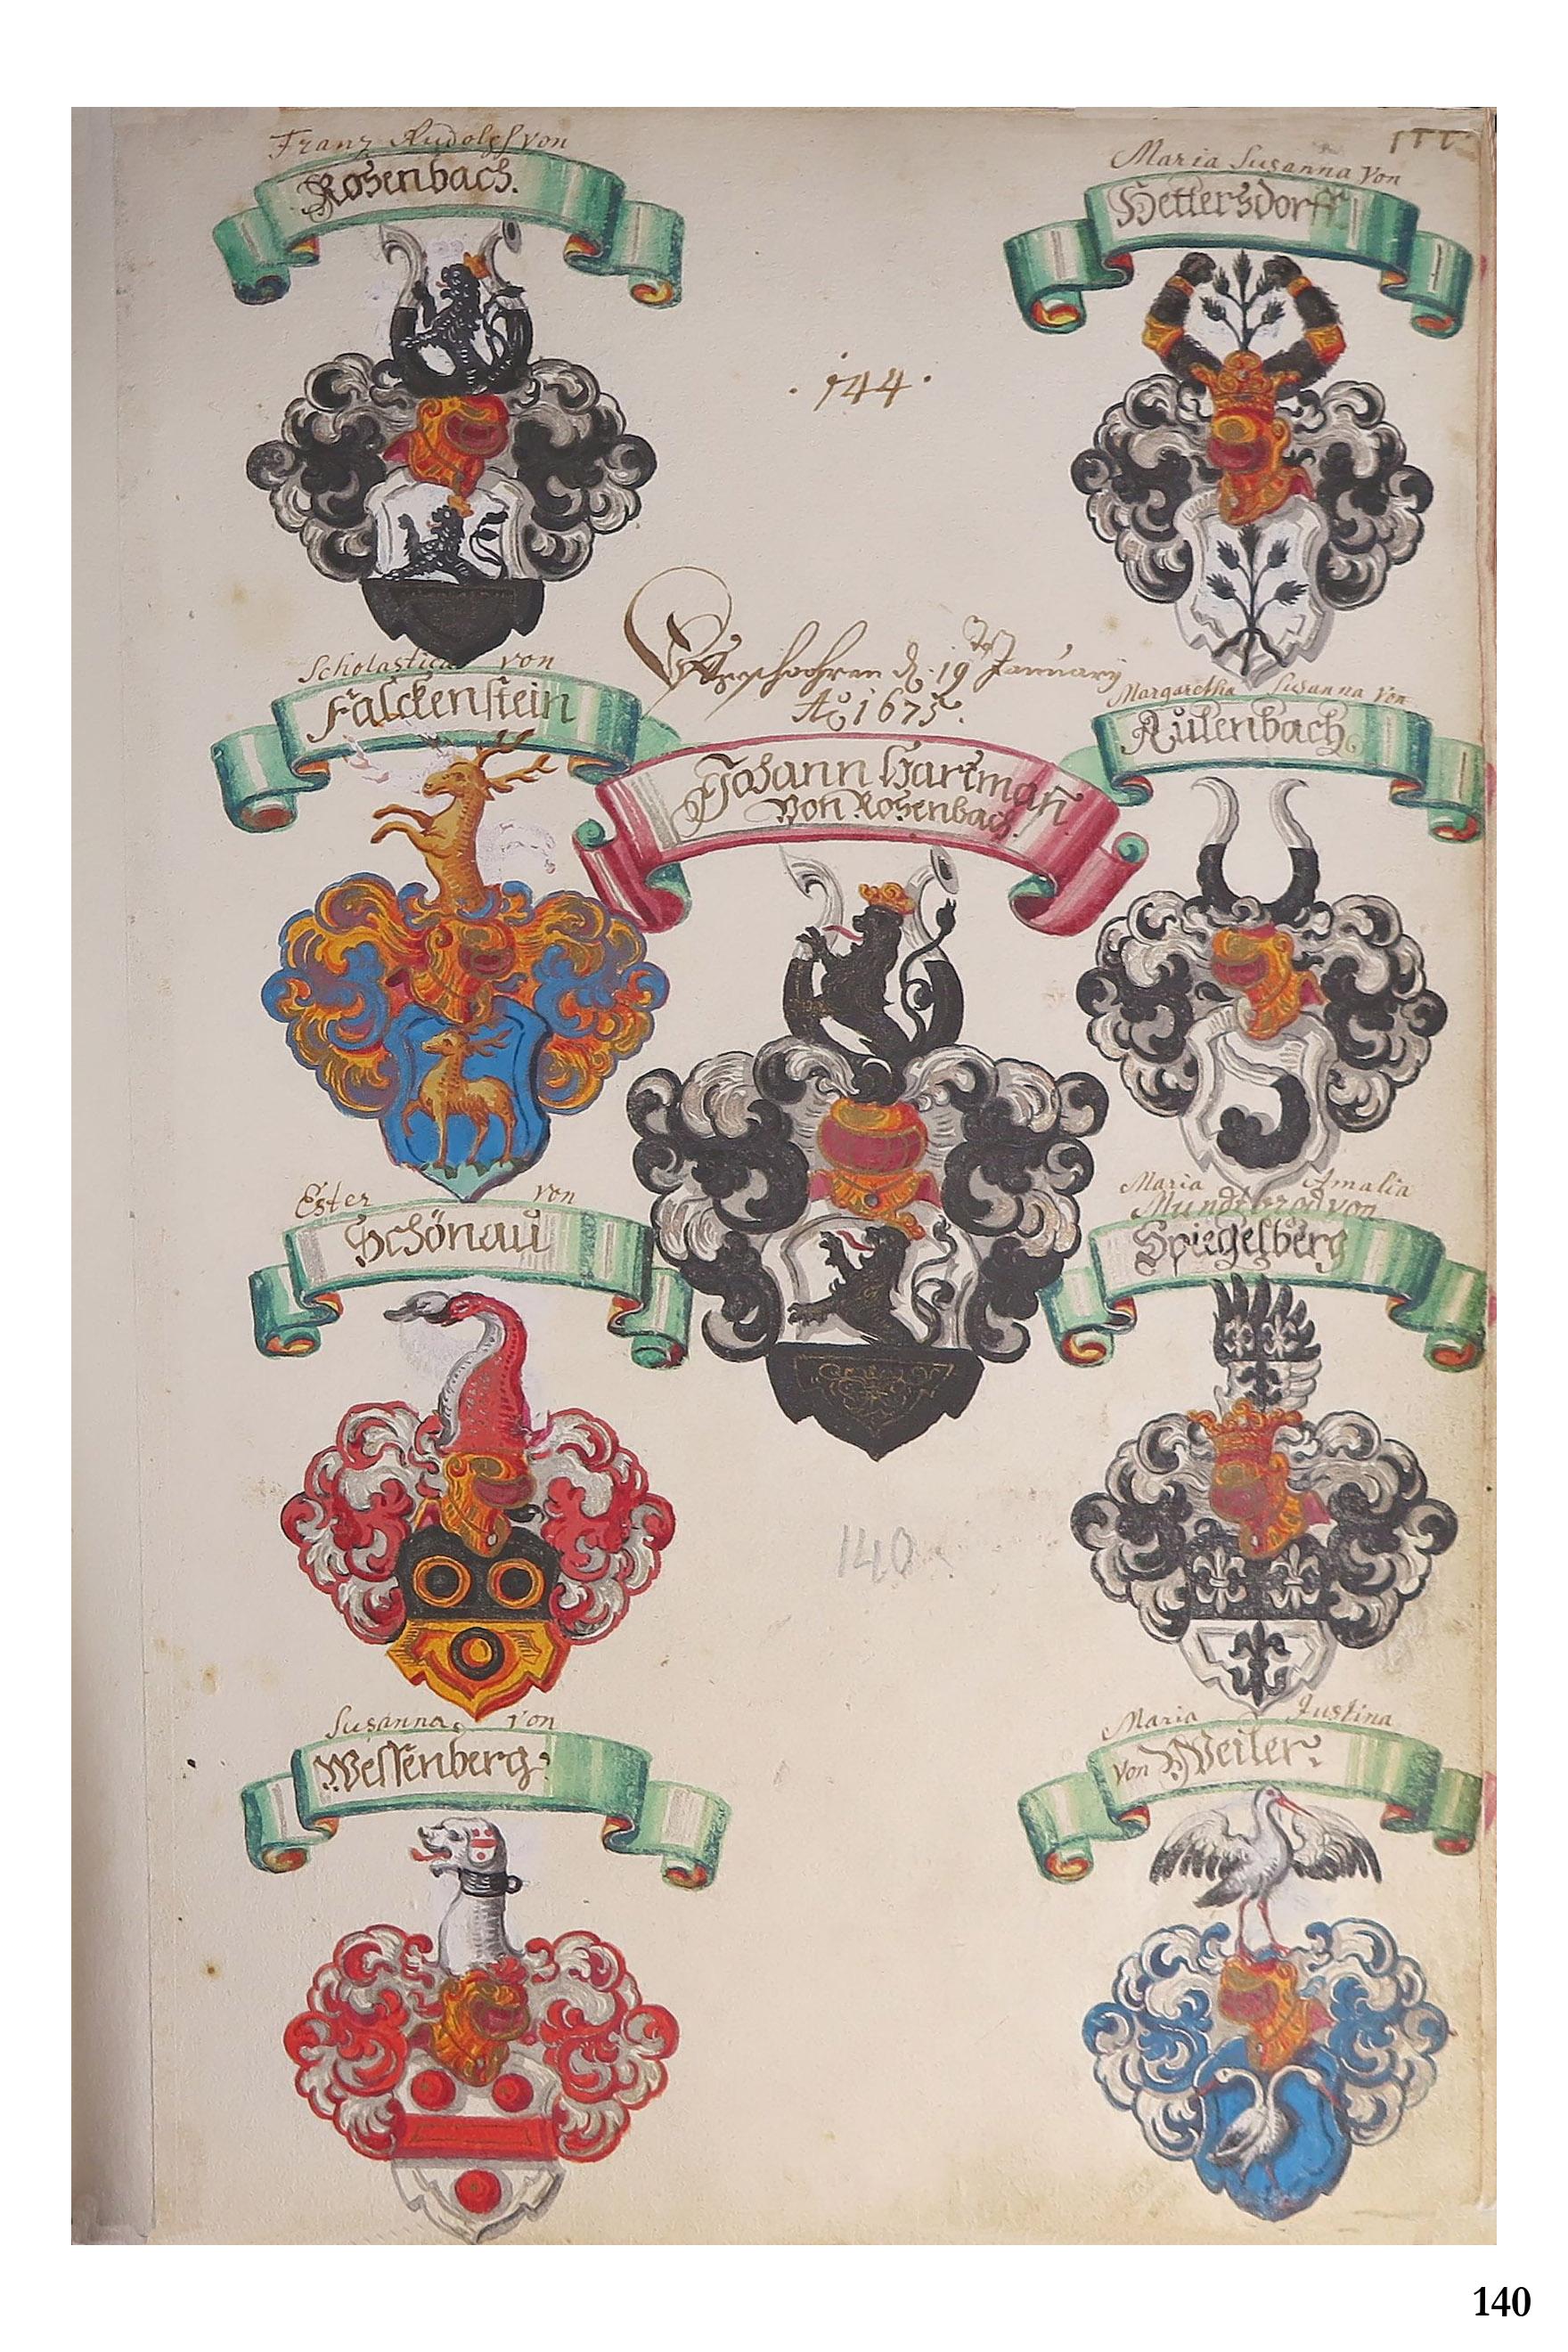 Franz Rudolph von
Rosenbach.
Maria Susanna von
Hettersdorff
144
Scholastica von
Falckenstein
den 19 January
Aō 1675.
Margaretha Susanna von
Aulenbach
Johann Hartman
von Rosenbach.
Ester von
Schönau
Maria Amalia
von
Spiegelberg
140
Susanna von
Wessenberg
Maria Justina
von Weiler
140